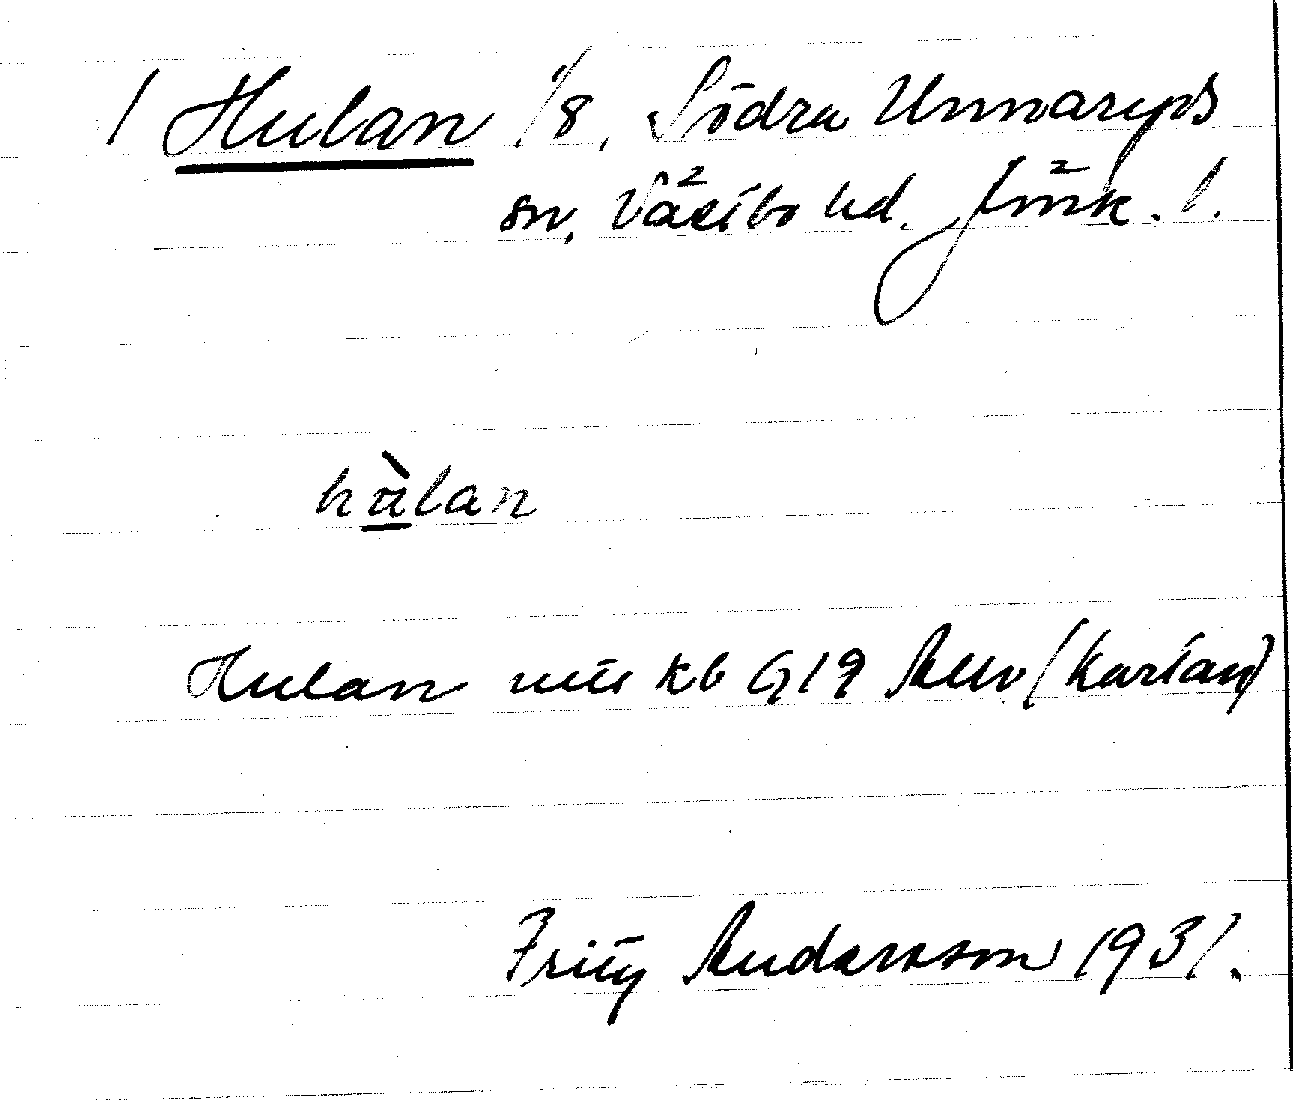 / Hulan 1/8, Södra Unnaryds
sn, Västbo hd. Jönk. l.
hùlan
Hulan utis kb G19 Allv (kartan)
Fritz Andersson 1931.